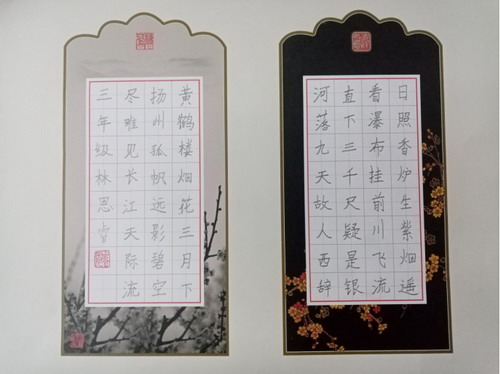 日照香炉生紫烟遥
看瀑布挂前川飞流
直下三千尺疑是银
河落九天故人西辞
黄鹤楼烟花三月下
扬州孤帆远影碧空
尽唯见长江天际流
三年级林